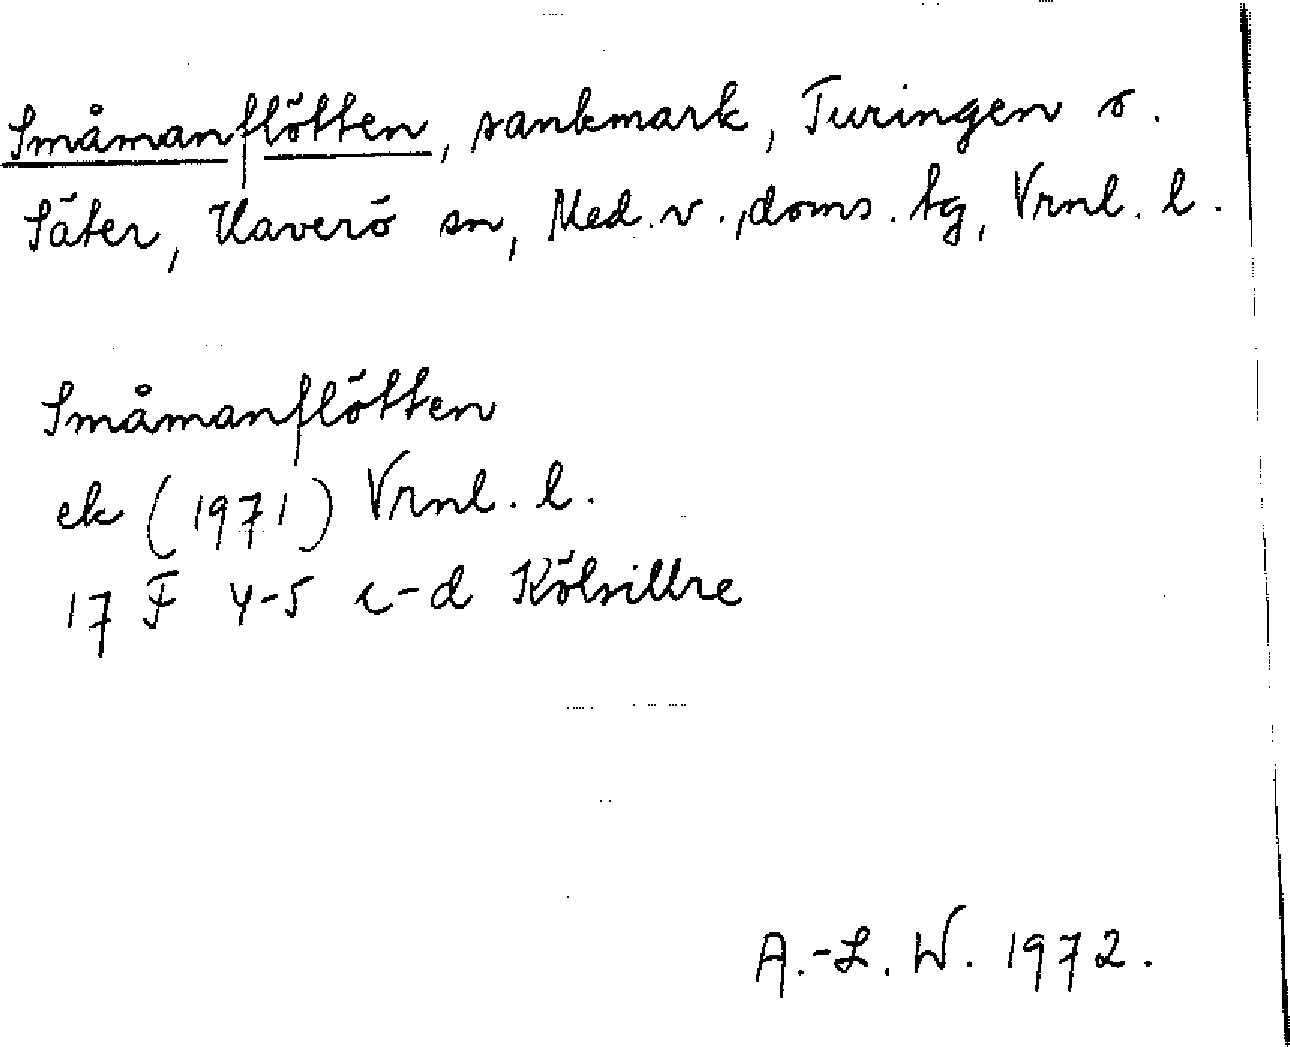 Småmanflötten, sankmark, Turingen o.
Säter, Haverö sn, Med. v., doms. tg, Vrnl. l.
Småmanflötten
ek (1971) Vrnl. l.
17 F 4-5 c-d Kölsillre
A.-L. W. 1972.